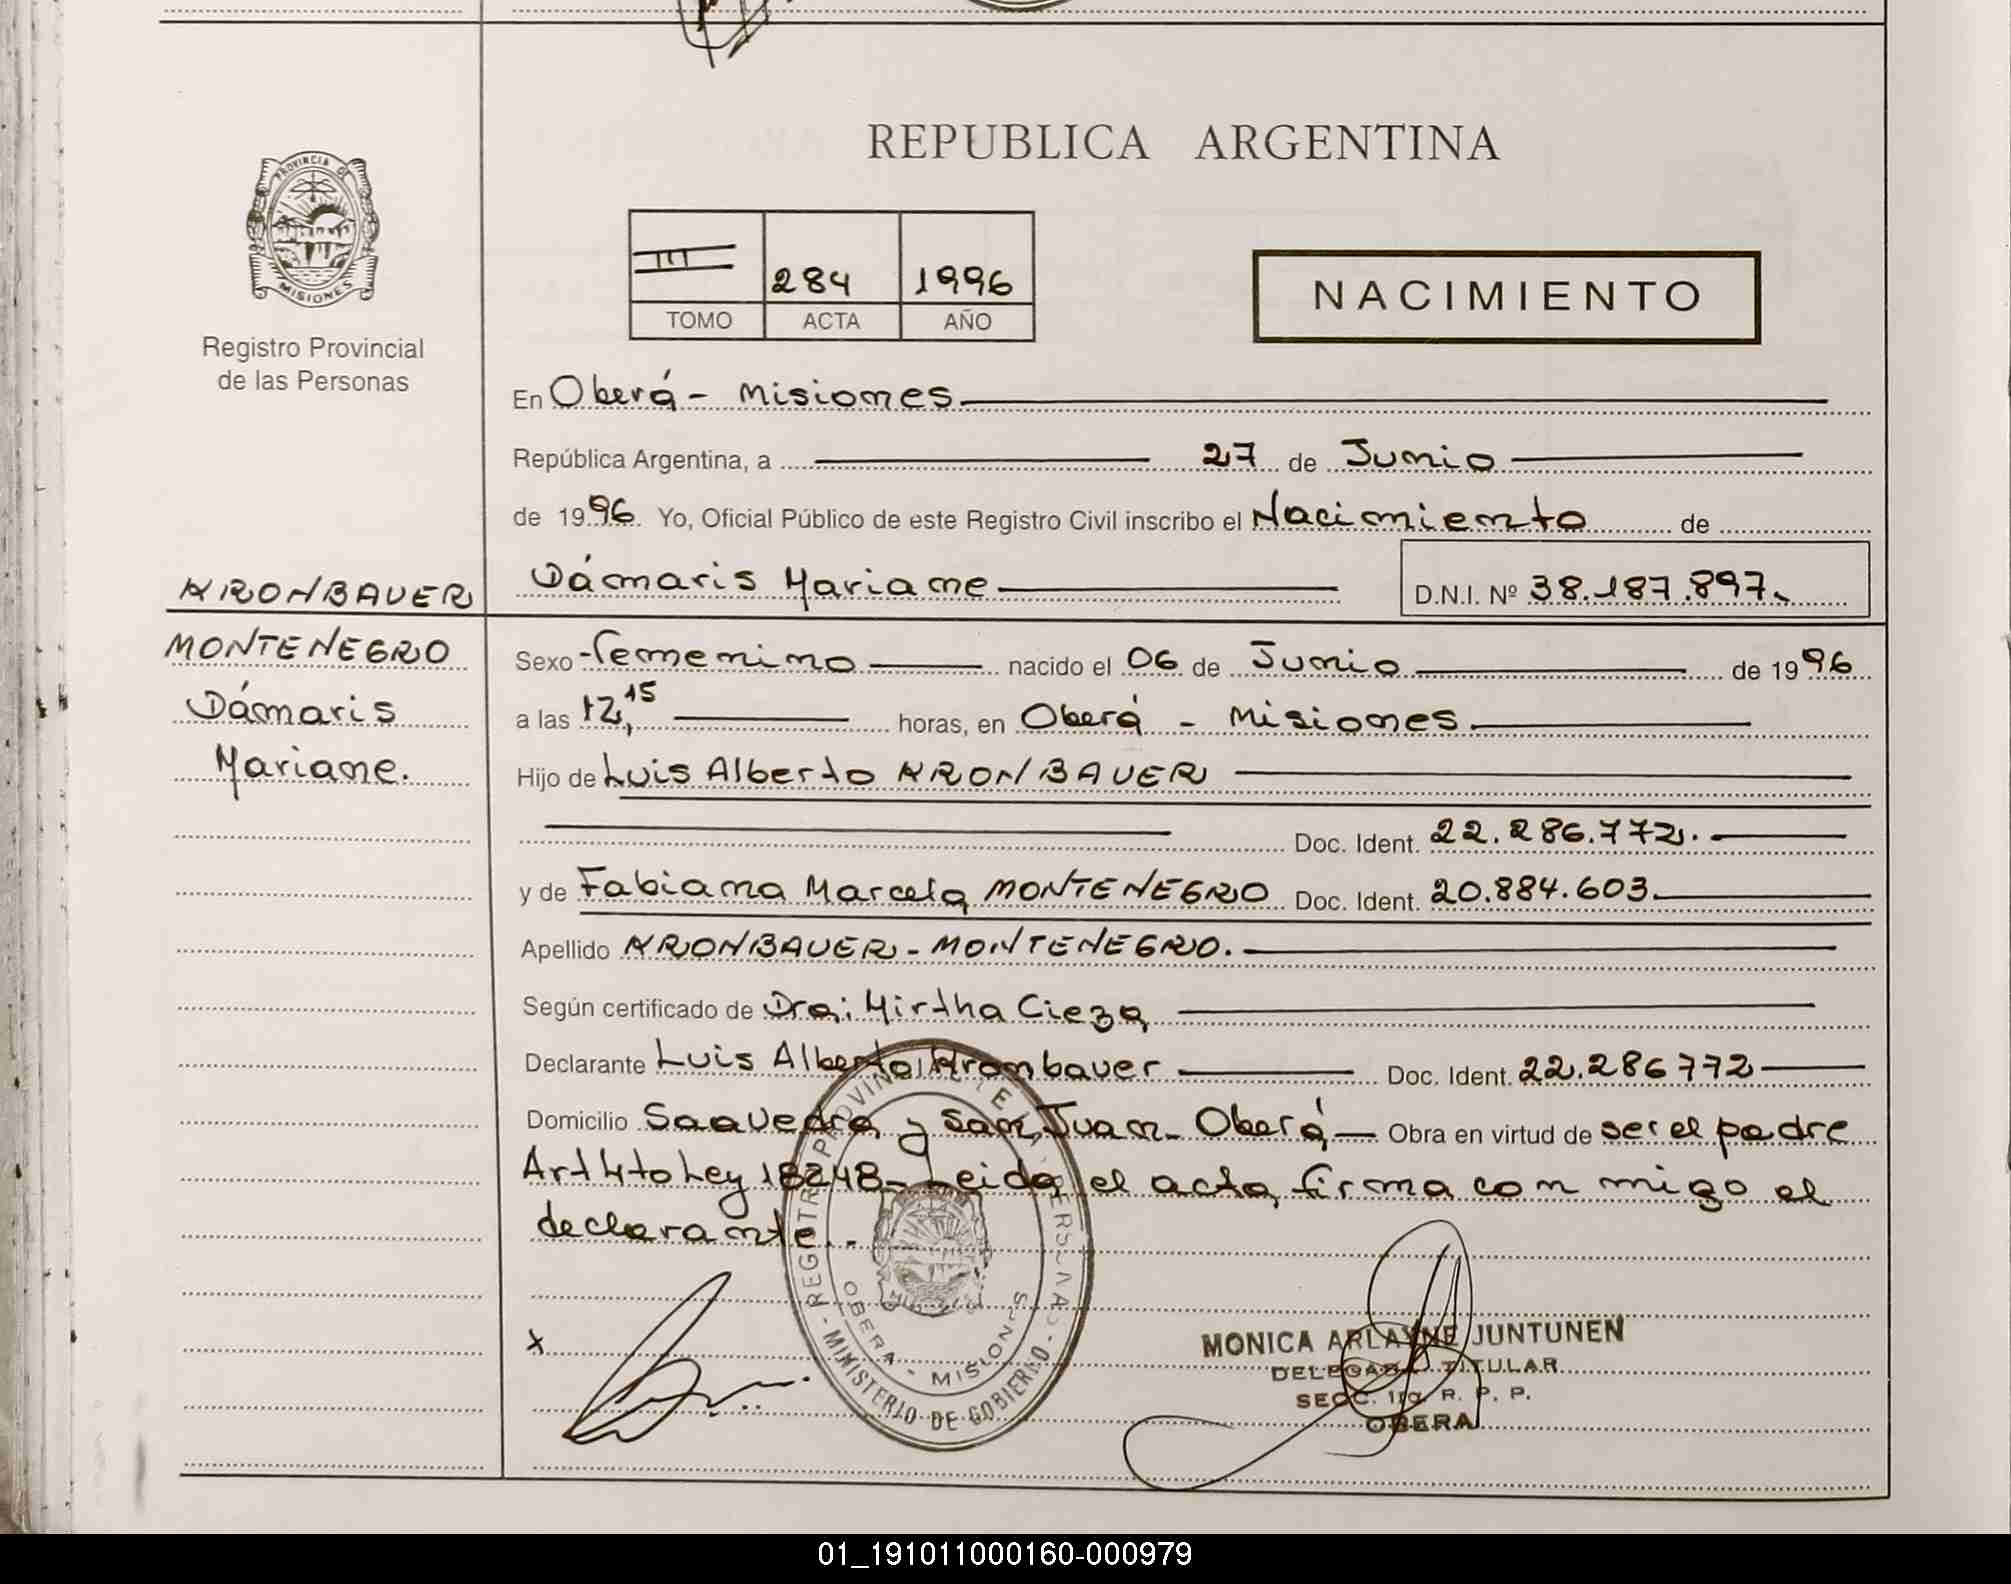 REPUBLICA ARGENTINA
PROVINCIA DE
MISIONES
Registro Provincial
de las Personas
III 284 1996
TOMO ACTA AÑO
NACIMIENTO
En Oberá - Misiones
República Argentina, a 27 de Junio
de 1996. Yo, Oficial Público de este Registro Civil inscribo el Nacimiento de
Dámaris Mariane D.N.I. Nº 38.187.897.
KRONBAUER
MONTENEGRO
Dámaris
Mariane.
Sexo Femenino nacido el 06 de Junio de 1996
a las 12,15 horas, en Oberá - Misiones
Hijo de Luis Alberto KRONBAUER
Doc. Ident. 22.286.772.
y de Fabiana Marcela MONTENEGRO Doc. Ident. 20.884.603.
Apellido KRONBAUER - MONTENEGRO.
Según certificado de Dra: Mirtha Cieza
Declarante Luis Alberto Kronbauer Doc. Ident. 22.286772
Domicilio Saavedra y San Juan - Oberá - Obra en virtud de ser el padre
Art 4to Ley 18248 - Leida el acta, firma con migo el
declarante. -
REGISTRO PROVINCIAL DE LAS PERSONAS
OBERA - MISIONES
- MINISTERIO DE GOBIERNO -
X
MONICA ARLAYNE JUNTUNEN
DELEGADA TITULAR
SECC. 1ra R. P. P.
OBERA
01_191011000160-000979